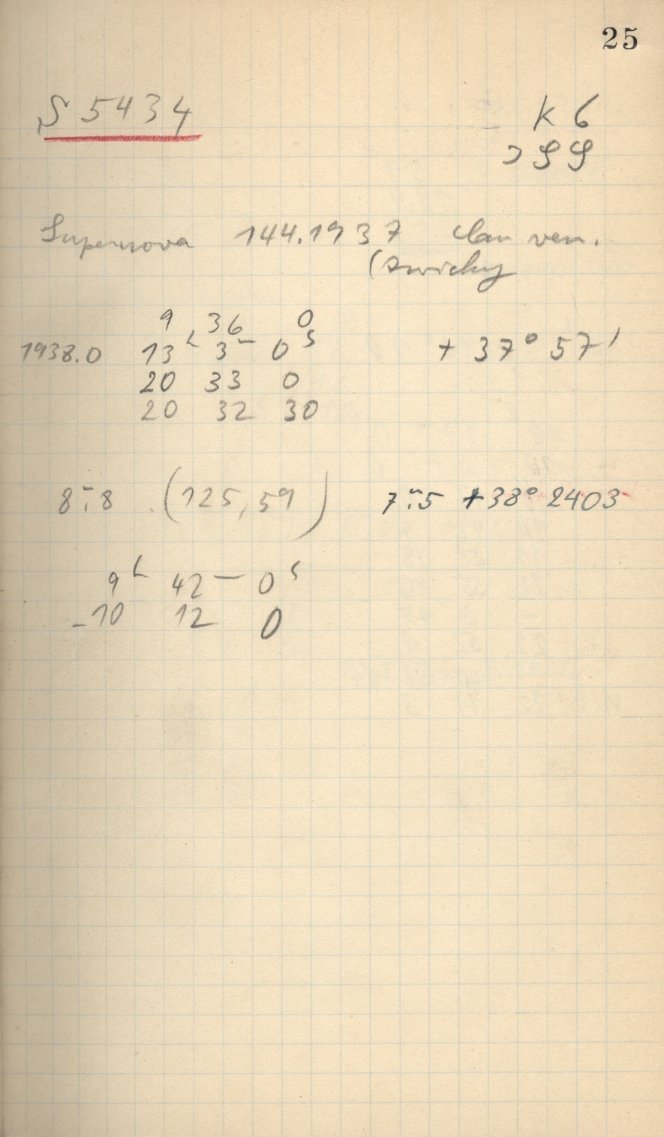 25
S 5434
K 6
299
Supernova 144.1937 Can ven.
(Zwicky
9 36 0
1938.0 13ʰ 3ᵐ 0ˢ + 37° 57'
20 33 0
20 32 30
8ᵐ.8 (125,59) 7ᵐ.5 +38° 2403
9ʰ 42ᵐ 0ˢ
-10 12 0